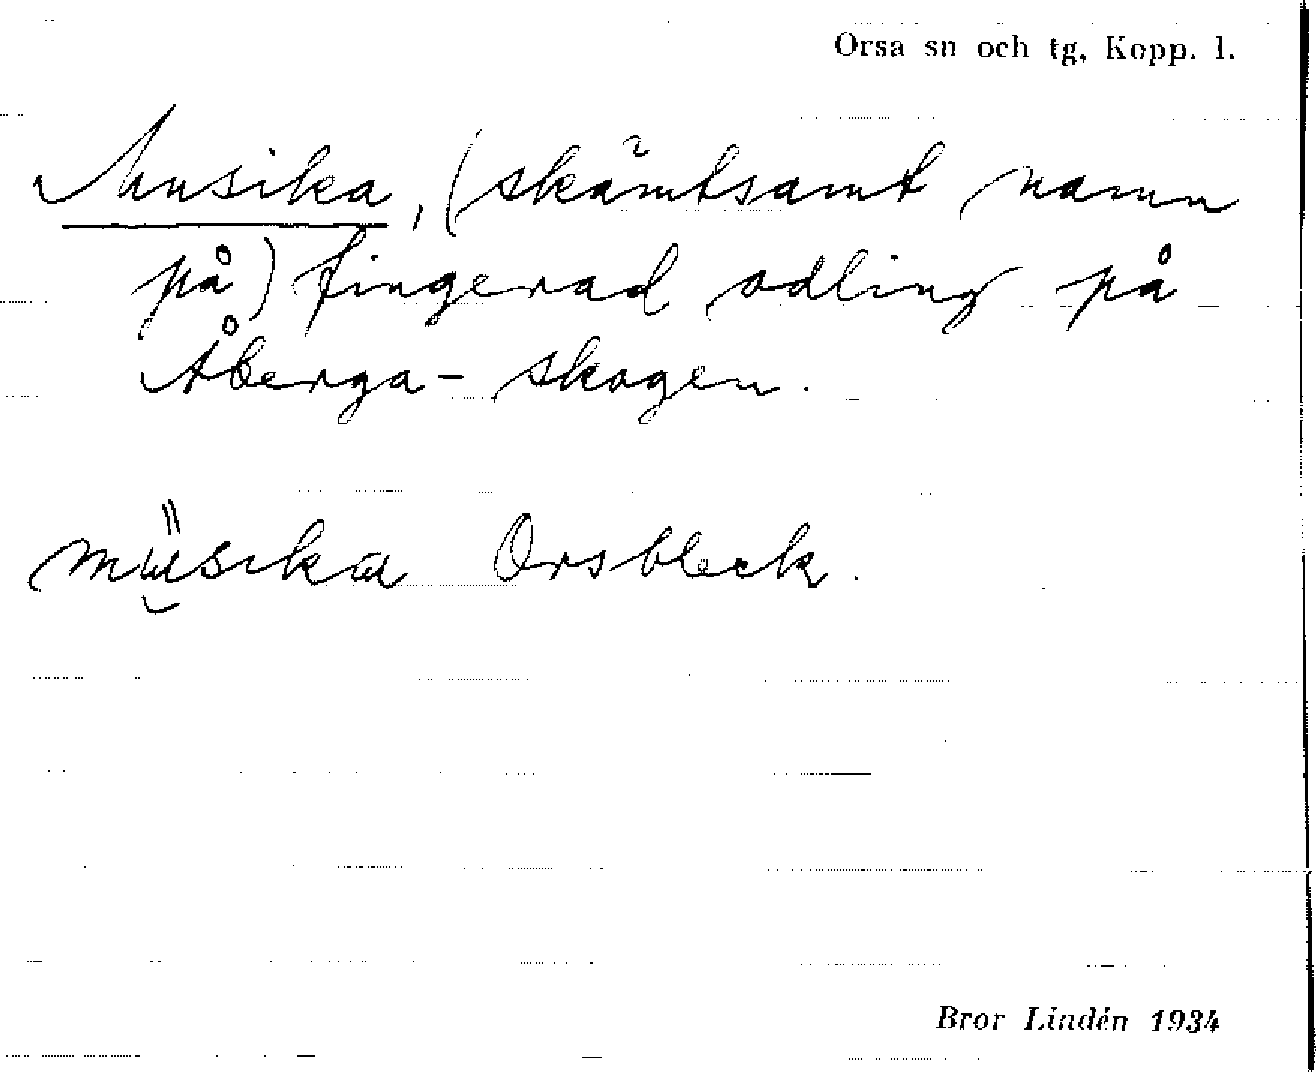 Orsa sn och tg, Kopp. l.
Musika, (skämtsamt namn
på) fingerad odling på
Åberga-skogen.
müsika Orsbleck.
Bror Lindén 1934